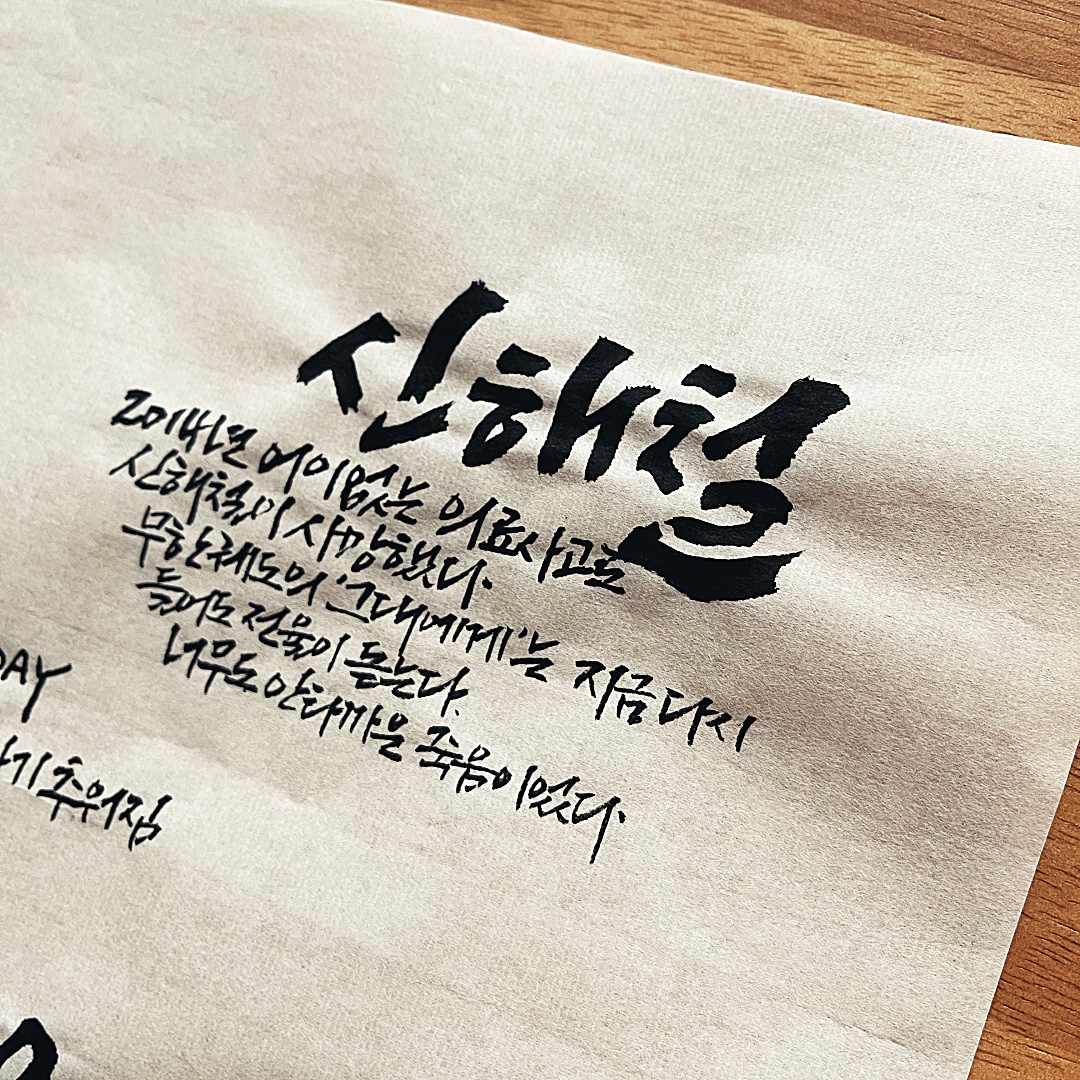 신해철
2014년 어이없는 의료사고로
신해철이 사망했다.
무한궤도의 '그대에게'는 지금 다시
들어도 전율이 돋는다.
너무도 안타까운 죽음이었다.
DAY
추워짐